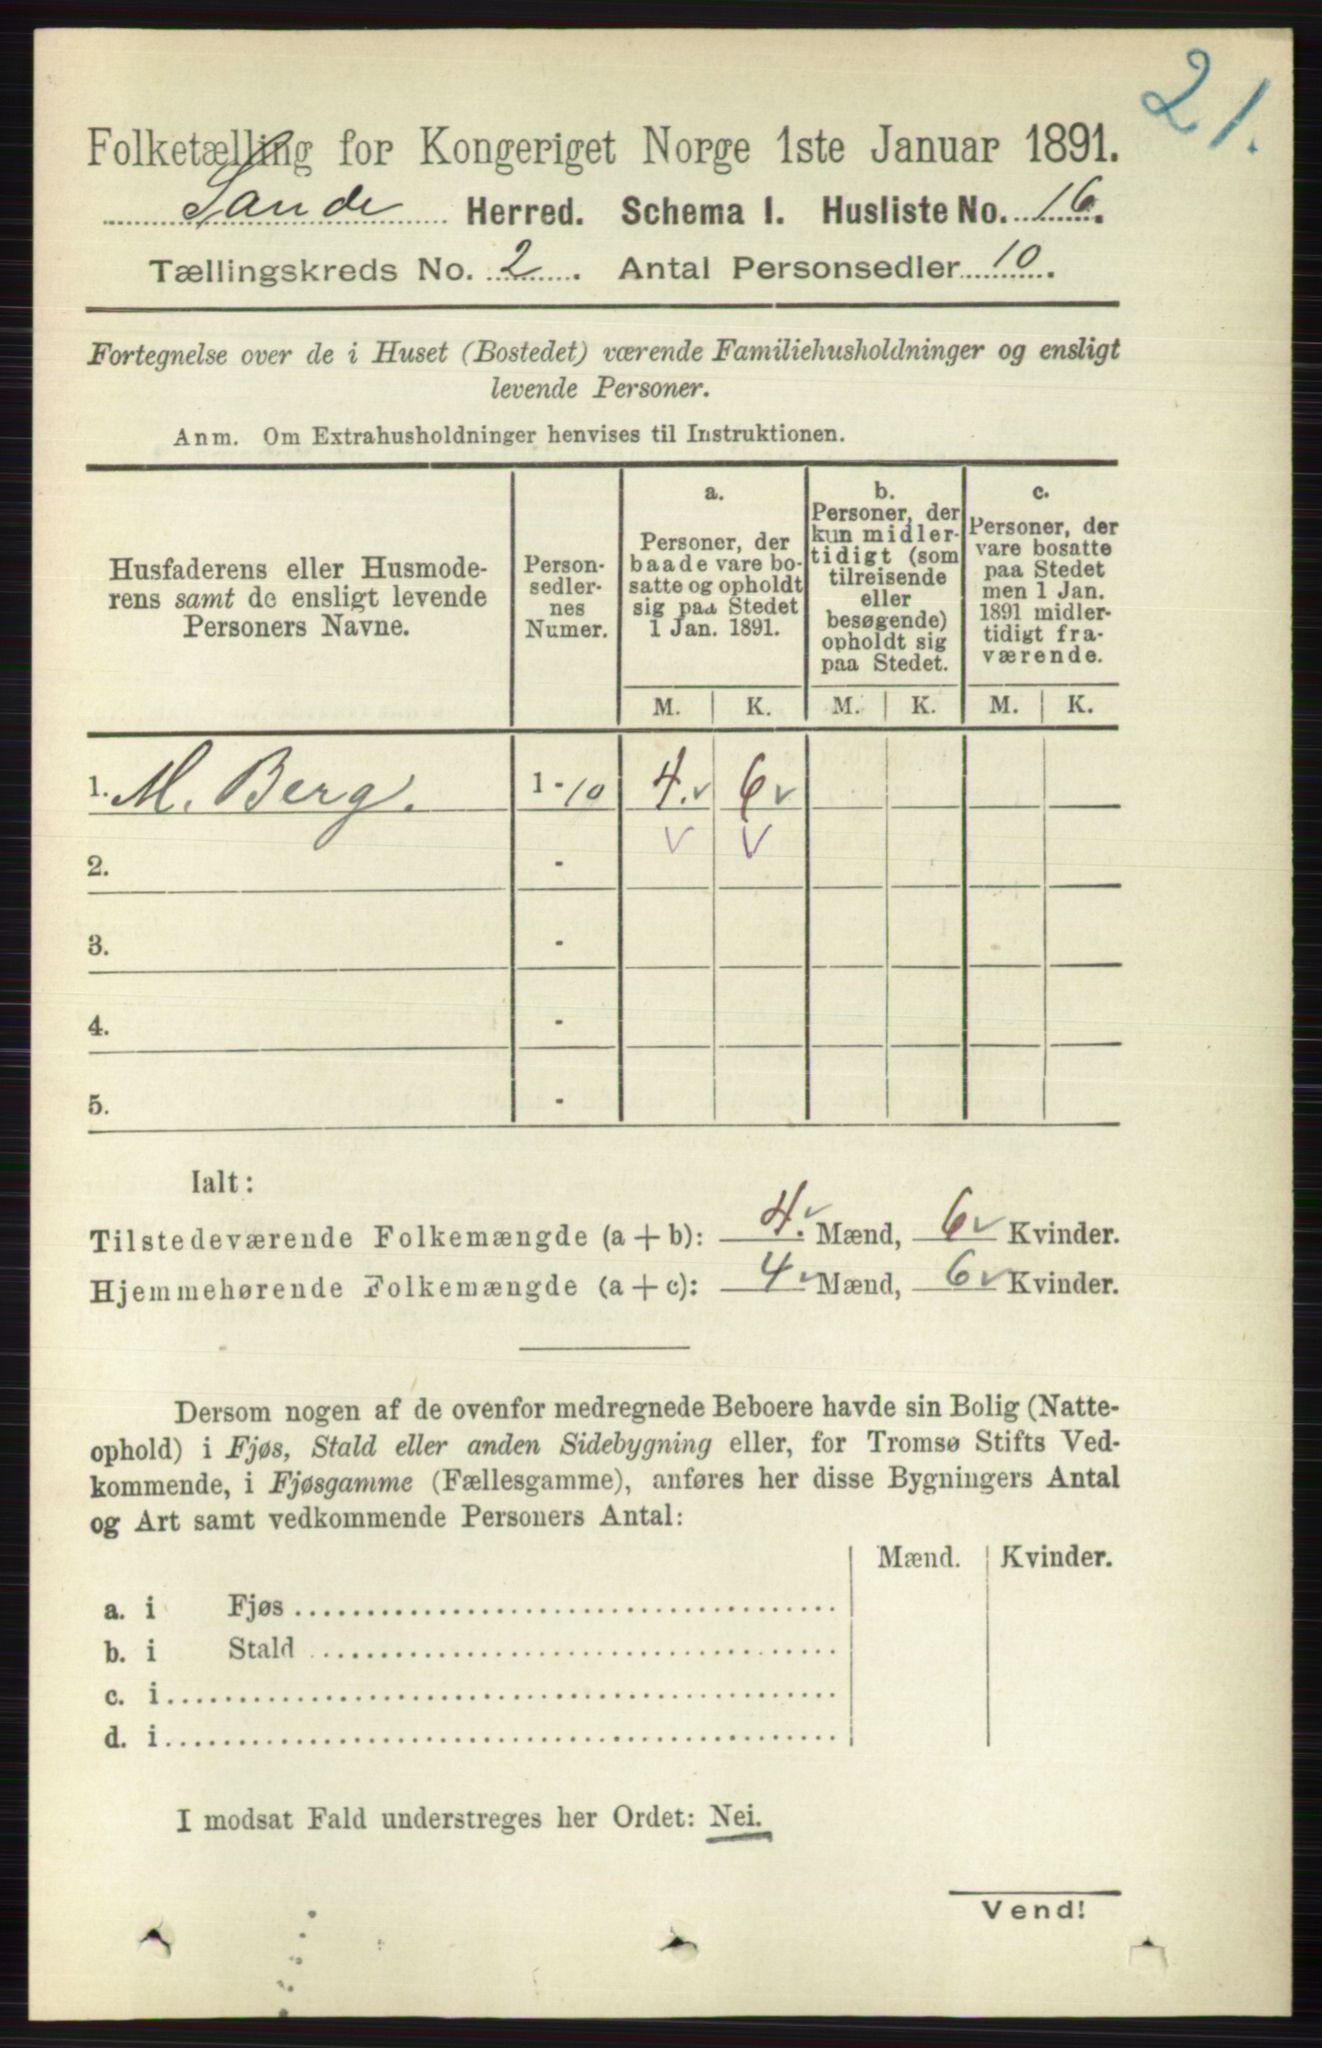 21.
Folketælling for Kongeriget Norge 1ste Januar 1891.
Sande Herred. Schema I. Husliste No. 16.
Tællingskreds No. 2. Antal Personsedler 10.
Fortegnelse over de i Huset (Bostedet) værende Familiehusholdninger og ensligt
levende Personer.
Anm. Om Extrahusholdninger henvises til Instruktionen.
Husfaderens eller Husmode-
rens samt de ensligt levende
Personers Navne.
Person-
sedler-
nes
Numer.
a.
Personer, der
baade vare bo-
satte og opholdt
sig paa Stedet
1 Jan. 1891.
b.
Personer, der
kun midler-
tidigt (som
tilreisende
eller
besøgende)
opholdt sig
paa Stedet.
c.
Personer, der
vare bosatte
paa Stedet
men 1 Jan.
1891 midler-
tidigt fra-
værende.
M. K. M. K. M. K.
1. M. Berg. 1-10 4.v 6v
v v
2. -
3. -
4. -
5. -
Ialt:
Tilstedeværende Folkemængde (a + b): 4.v Mænd, 6v Kvinder.
Hjemmehørende Folkemængde (a + c): 4v Mænd, 6v Kvinder.
Dersom nogen af de ovenfor medregnede Beboere havde sin Bolig (Natte-
ophold) i Fjøs, Stald eller anden Sidebygning eller, for Tromsø Stifts Ved-
kommende, i Fjøsgamme (Fællesgamme), anføres her disse Bygningers Antal
og Art samt vedkommende Personers Antal:
Mænd. Kvinder.
a. i Fjøs
b. i Stald
c. i
d. i
I modsat Fald understreges her Ordet: Nei.
Vend!